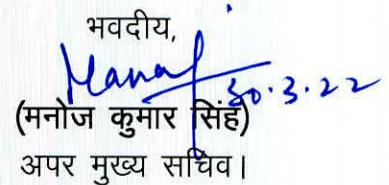 भवदीय,
Manoj
30.3.22
(मनोज कुमार सिंह)
अपर मुख्य सचिव।